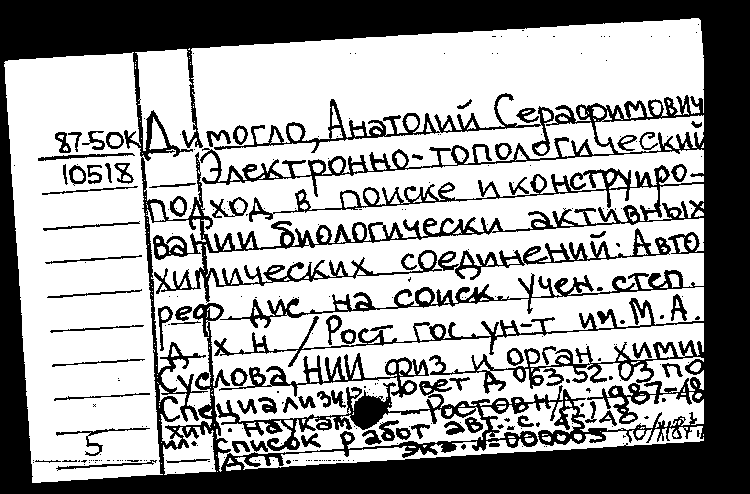 87-50К Димогло, Анатолий Серафимович
10518 Электронно-топологический
подход в поиске и конструиро-
вании биологически активных
химических соединений: Авто
реф. дис. на соиск. учен. степ.
д. х. н. / Рост. гос. ун-т им. М. А.
Суслова, НИИ физ. и орган. хими
Специализир. совет Д 063.52.03 по
хим. наукам — Ростов н/Д, 1987.-48
5 ил. список работ авт.: с. 45-48.
ДСП. Экз. №000005